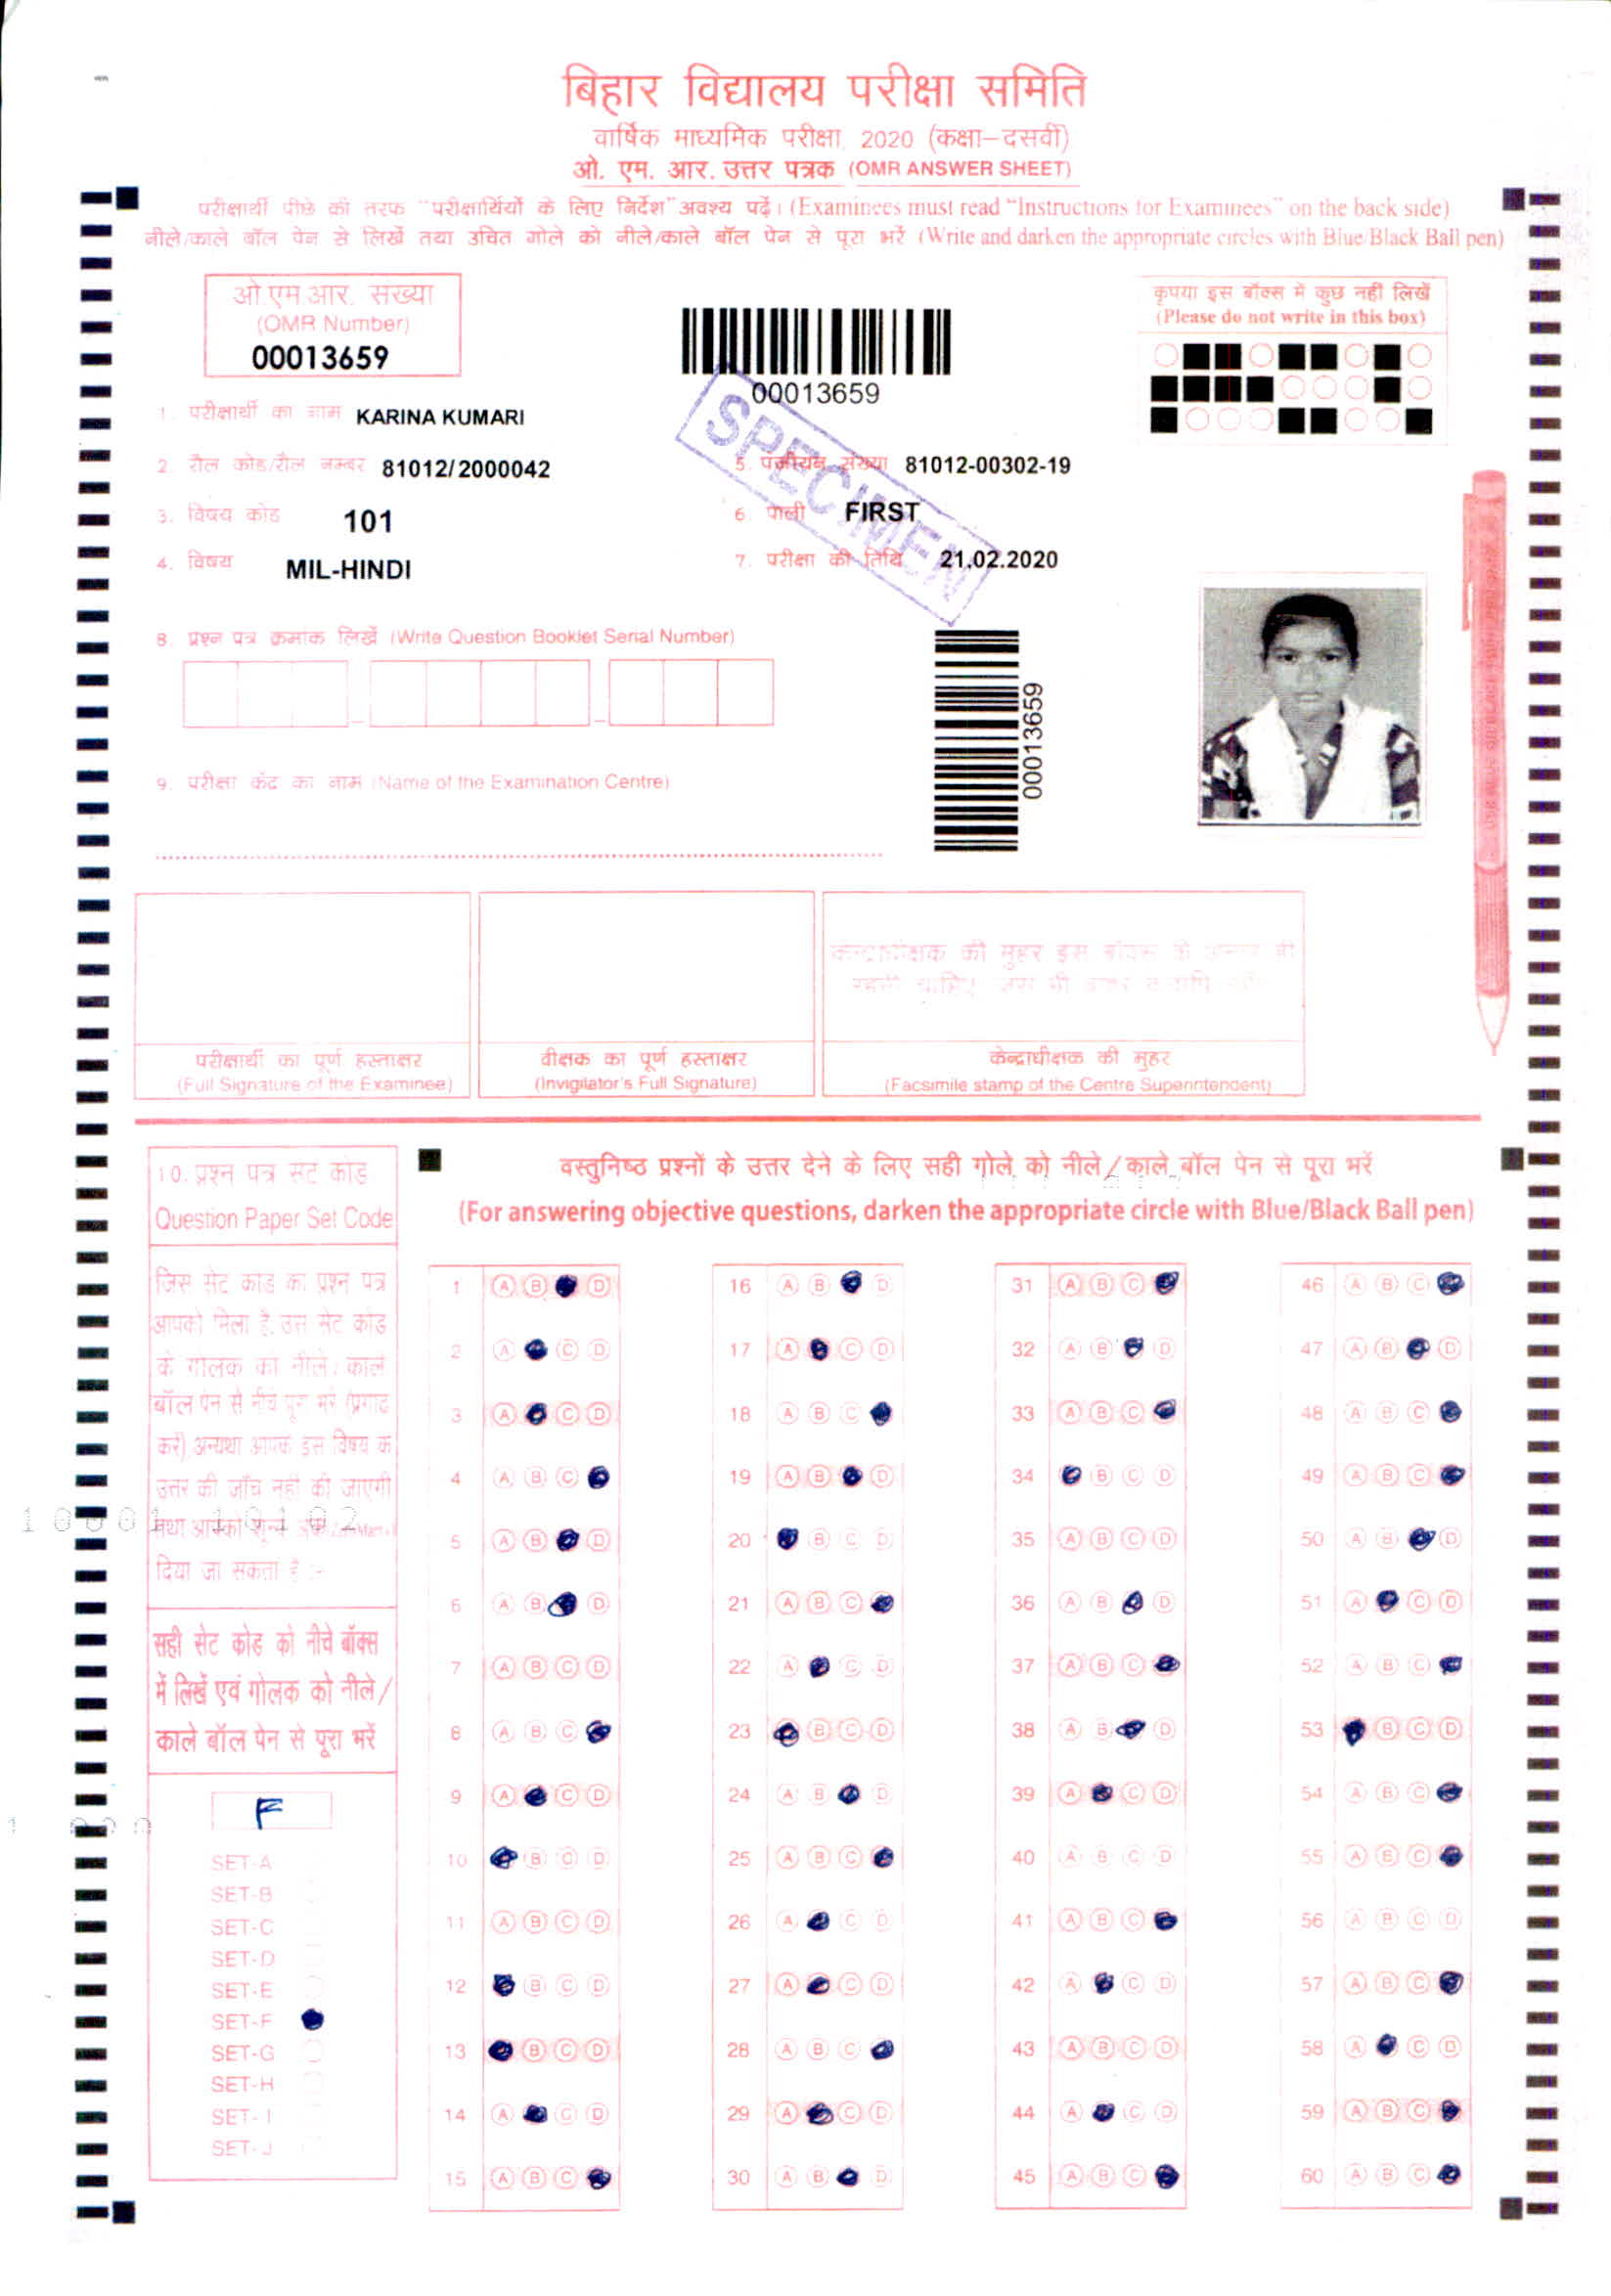 बिहार विद्यालय परीक्षा समिति
वार्षिक माध्यमिक परीक्षा, 2020 (कक्षा-दसवीं)
ओ. एम. आर. उत्तर पत्रक (OMR ANSWER SHEET)
परीक्षार्थी पीछे की तरफ "परीक्षार्थियों के लिए निर्देश" अवश्य पढ़ें। (Examinees must read "Instructions for Examinees" on the back side)
नीले/काले बॉल पेन से लिखें तथा उचित गोले को नीले/काले बॉल पेन से पूरा भरें (Write and darken the appropriate circles with Blue/Black Ball pen)
ओ.एम.आर. संख्या
(OMR Number)
00013659
00013659
कृपया इस बॉक्स में कुछ नहीं लिखें
(Please do not write in this box)
SPECIMEN
1. परीक्षार्थी का नाम KARINA KUMARI
2. रौल कोड/रौल नम्बर 81012/2000042
5. पंजीयन संख्या 81012-00302-19
3. विषय कोड 101
6. पाली FIRST
4. विषय MIL-HINDI
7. परीक्षा की तिथि 21.02.2020
8. प्रश्न पत्र क्रमांक लिखें (Write Question Booklet Serial Number)
00013659
9. परीक्षा केंद्र का नाम (Name of the Examination Centre)
केन्द्राधीक्षक की मुहर इस बॉक्स के अन्दर ही
परीक्षार्थी का पूर्ण हस्ताक्षर
(Full Signature of the Examinee)
वीक्षक का पूर्ण हस्ताक्षर
(Invigilator's Full Signature)
केन्द्राधीक्षक की मुहर
(Facsimile stamp of the Centre Superintendent)
10. प्रश्न पत्र सेट कोड
Question Paper Set Code
जिस सेट कोड का प्रश्न पत्र
आपको मिला है, उस सेट कोड
के गोलक को नीले/काले
बॉल पेन से नीचे पूरा भरें (प्रगाढ़
करें) अन्यथा आपके इस विषय के
उत्तर की जाँच नहीं की जाएगी
तथा आपको शून्य अंक
दिया जा सकता है :-
सही सेट कोड को नीचे बॉक्स
में लिखें एवं गोलक को नीले/
काले बॉल पेन से पूरा भरें
F
SET-A
SET-B
SET-C
SET-D
SET-E
SET-F
SET-G
SET-H
SET-I
SET-J
वस्तुनिष्ठ प्रश्नों के उत्तर देने के लिए सही गोले को नीले/काले बॉल पेन से पूरा भरें
(For answering objective questions, darken the appropriate circle with Blue/Black Ball pen)
1 A B D
2 A C D
3 A C D
4 A B C
5 A B D
6 A B D
7 A B C D
8 A B C
9 A C D
10 B C D
11 A B C D
12 B C D
13 B C D
14 A C D
15 A B C
16 A B D
17 A C D
18 A B C
19 A B D
20 B C D
21 A B C
22 A C D
23 B C D
24 A B D
25 A B C
26 A C D
27 A C D
28 A B C
29 A C D
30 A B D
31 A B C
32 A B D
33 A B C
34 B C D
35 A B C D
36 A B D
37 A B C
38 A B D
39 A C D
40 A B C D
41 A B C
42 A C D
43 A B C D
44 A C D
45 A B C
46 A B C
47 A B D
48 A B C
49 A B C
50 A B D
51 A C D
52 A B C
53 B C D
54 A B C
55 A B C
56 A B C D
57 A B C
58 A C D
59 A B C
60 A B C